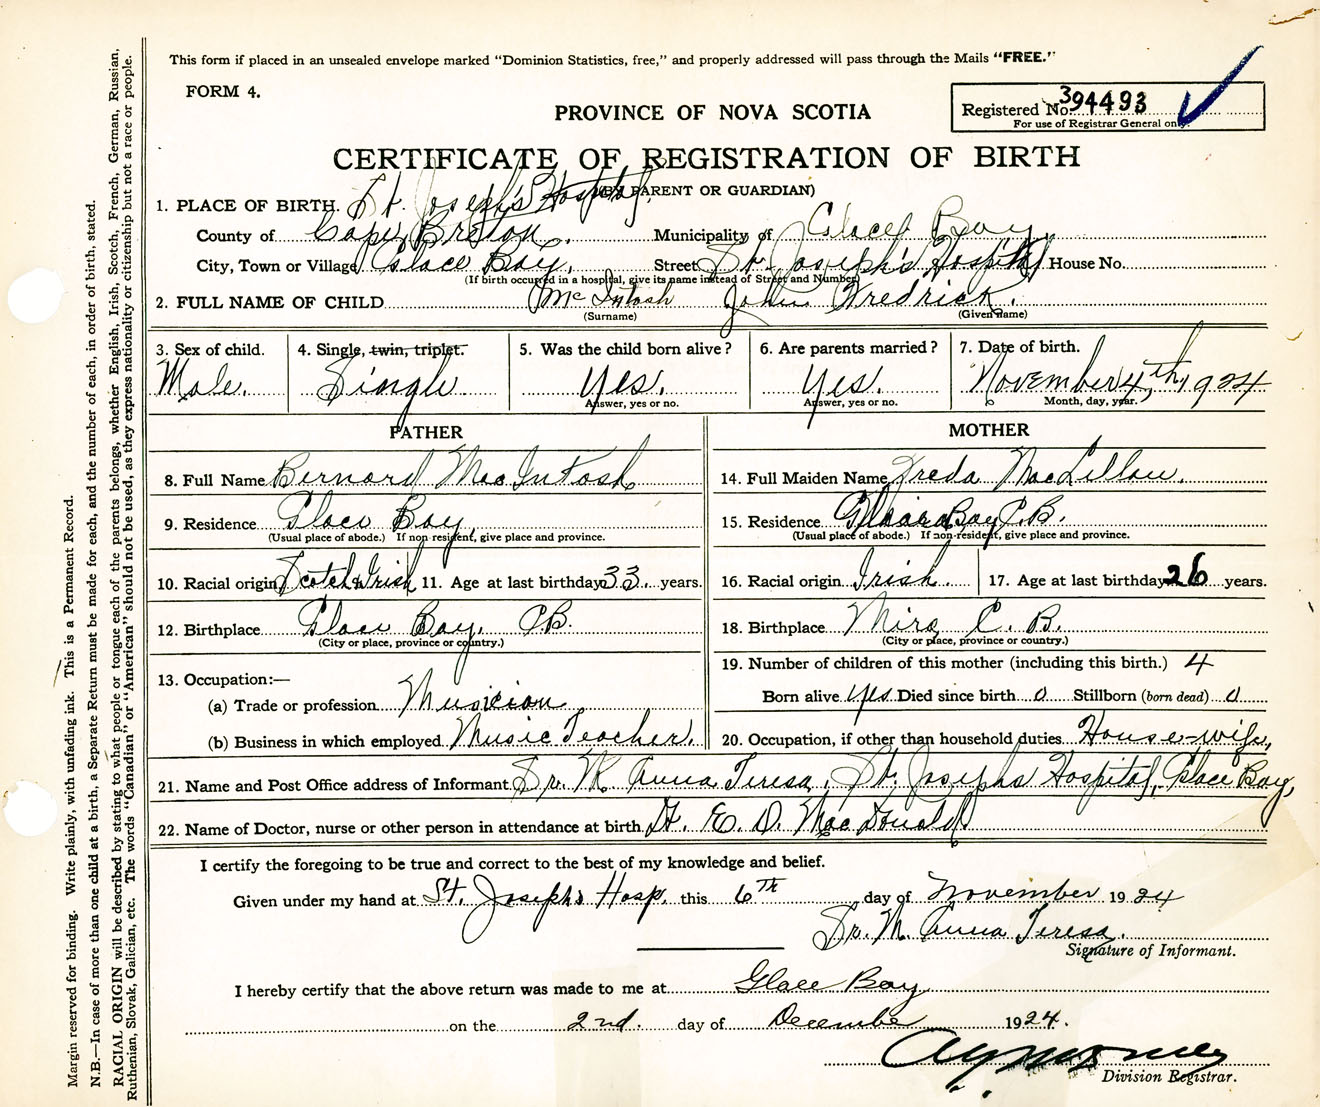 This form if placed in an unsealed envelope marked "Dominion Statistics, free," and properly addressed will pass through the Mails "FREE."
FORM 4.
Registered No. 394493
For use of Registrar General only.
PROVINCE OF NOVA SCOTIA
CERTIFICATE OF REGISTRATION OF BIRTH
(BY PARENT OR GUARDIAN)
1. PLACE OF BIRTH St. Joseph's Hospital,
County of Cape Breton. Municipality of Glace Bay
City, Town or Village Glace Bay, Street St. Joseph's Hospital House No.
(If birth occurred in a hospital, give its name instead of Street and Number)
2. FULL NAME OF CHILD McIntosh John Fredrick.
(Surname) (Given name)
3. Sex of child. 4. Single, twin, triplet. 5. Was the child born alive? 6. Are parents married? 7. Date of birth.
Male. Single Yes. Yes. November 4th, 1924
Answer, yes or no. Answer, yes or no. Month, day, year.
FATHER MOTHER
8. Full Name Bernard MacIntosh 14. Full Maiden Name Freda MacLellan.
9. Residence Glace Bay, 15. Residence Bay C.B.
(Usual place of abode.) If non-resident, give place and province. (Usual place of abode.) If non-resident, give place and province.
10. Racial origin Scotch & Irish 11. Age at last birthday 33 years. 16. Racial origin Irish. 17. Age at last birthday 26 years.
12. Birthplace Glace Bay, C.B. 18. Birthplace Mira C. B.
(City or place, province or country.) (City or place, province or country.)
19. Number of children of this mother (including this birth.) 4
13. Occupation:—
(a) Trade or profession Musician Born alive yes Died since birth 0 Stillborn (born dead) 0
(b) Business in which employed Music Teacher. 20. Occupation, if other than household duties House-wife,
21. Name and Post Office address of Informant Sr. M. Anna Teresa, St. Josephs Hospital, Glace Bay,
22. Name of Doctor, nurse or other person in attendance at birth E. D. MacDonald
I certify the foregoing to be true and correct to the best of my knowledge and belief.
Given under my hand at St. Joseph's Hosp. this 6th day of November 1924
Sr. M. Anna Teresa.
Signature of Informant.
I hereby certify that the above return was made to me at Glace Bay
on the 2nd. day of December 1924.
Division Registrar.
Margin reserved for binding. Write plainly, with unfading ink. This is a Permanent Record.
N.B.—In case of more than one child at a birth, a Separate Return must be made for each, and the number of each, in order of birth, stated.
RACIAL ORIGIN will be described by stating to what people or tongue each of the parents belongs, whether English, Irish, Scotch, French, German, Russian,
Ruthenian, Slovak, Galician, etc. The words "Canadian" or "American" should not be used, as they express nationality or citizenship but not a race or people.